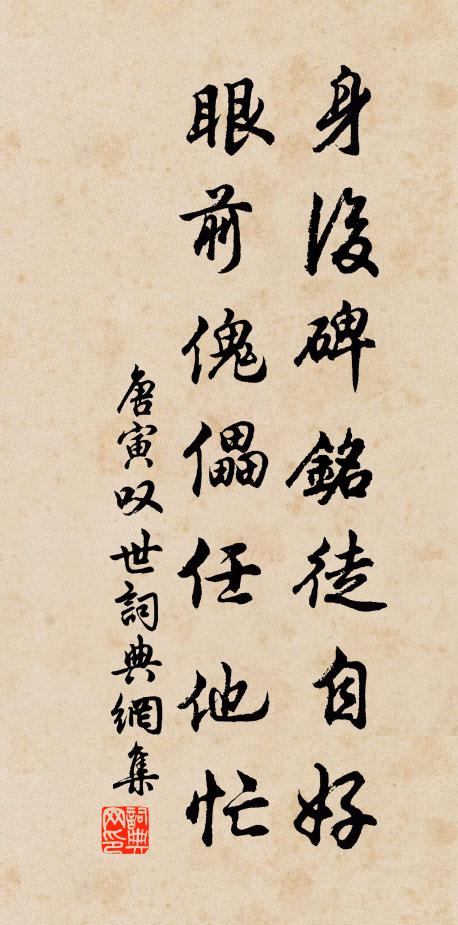 身後碑銘徒自好
眼前傀儡任他忙
唐寅叹世詞典網集
詞典网印